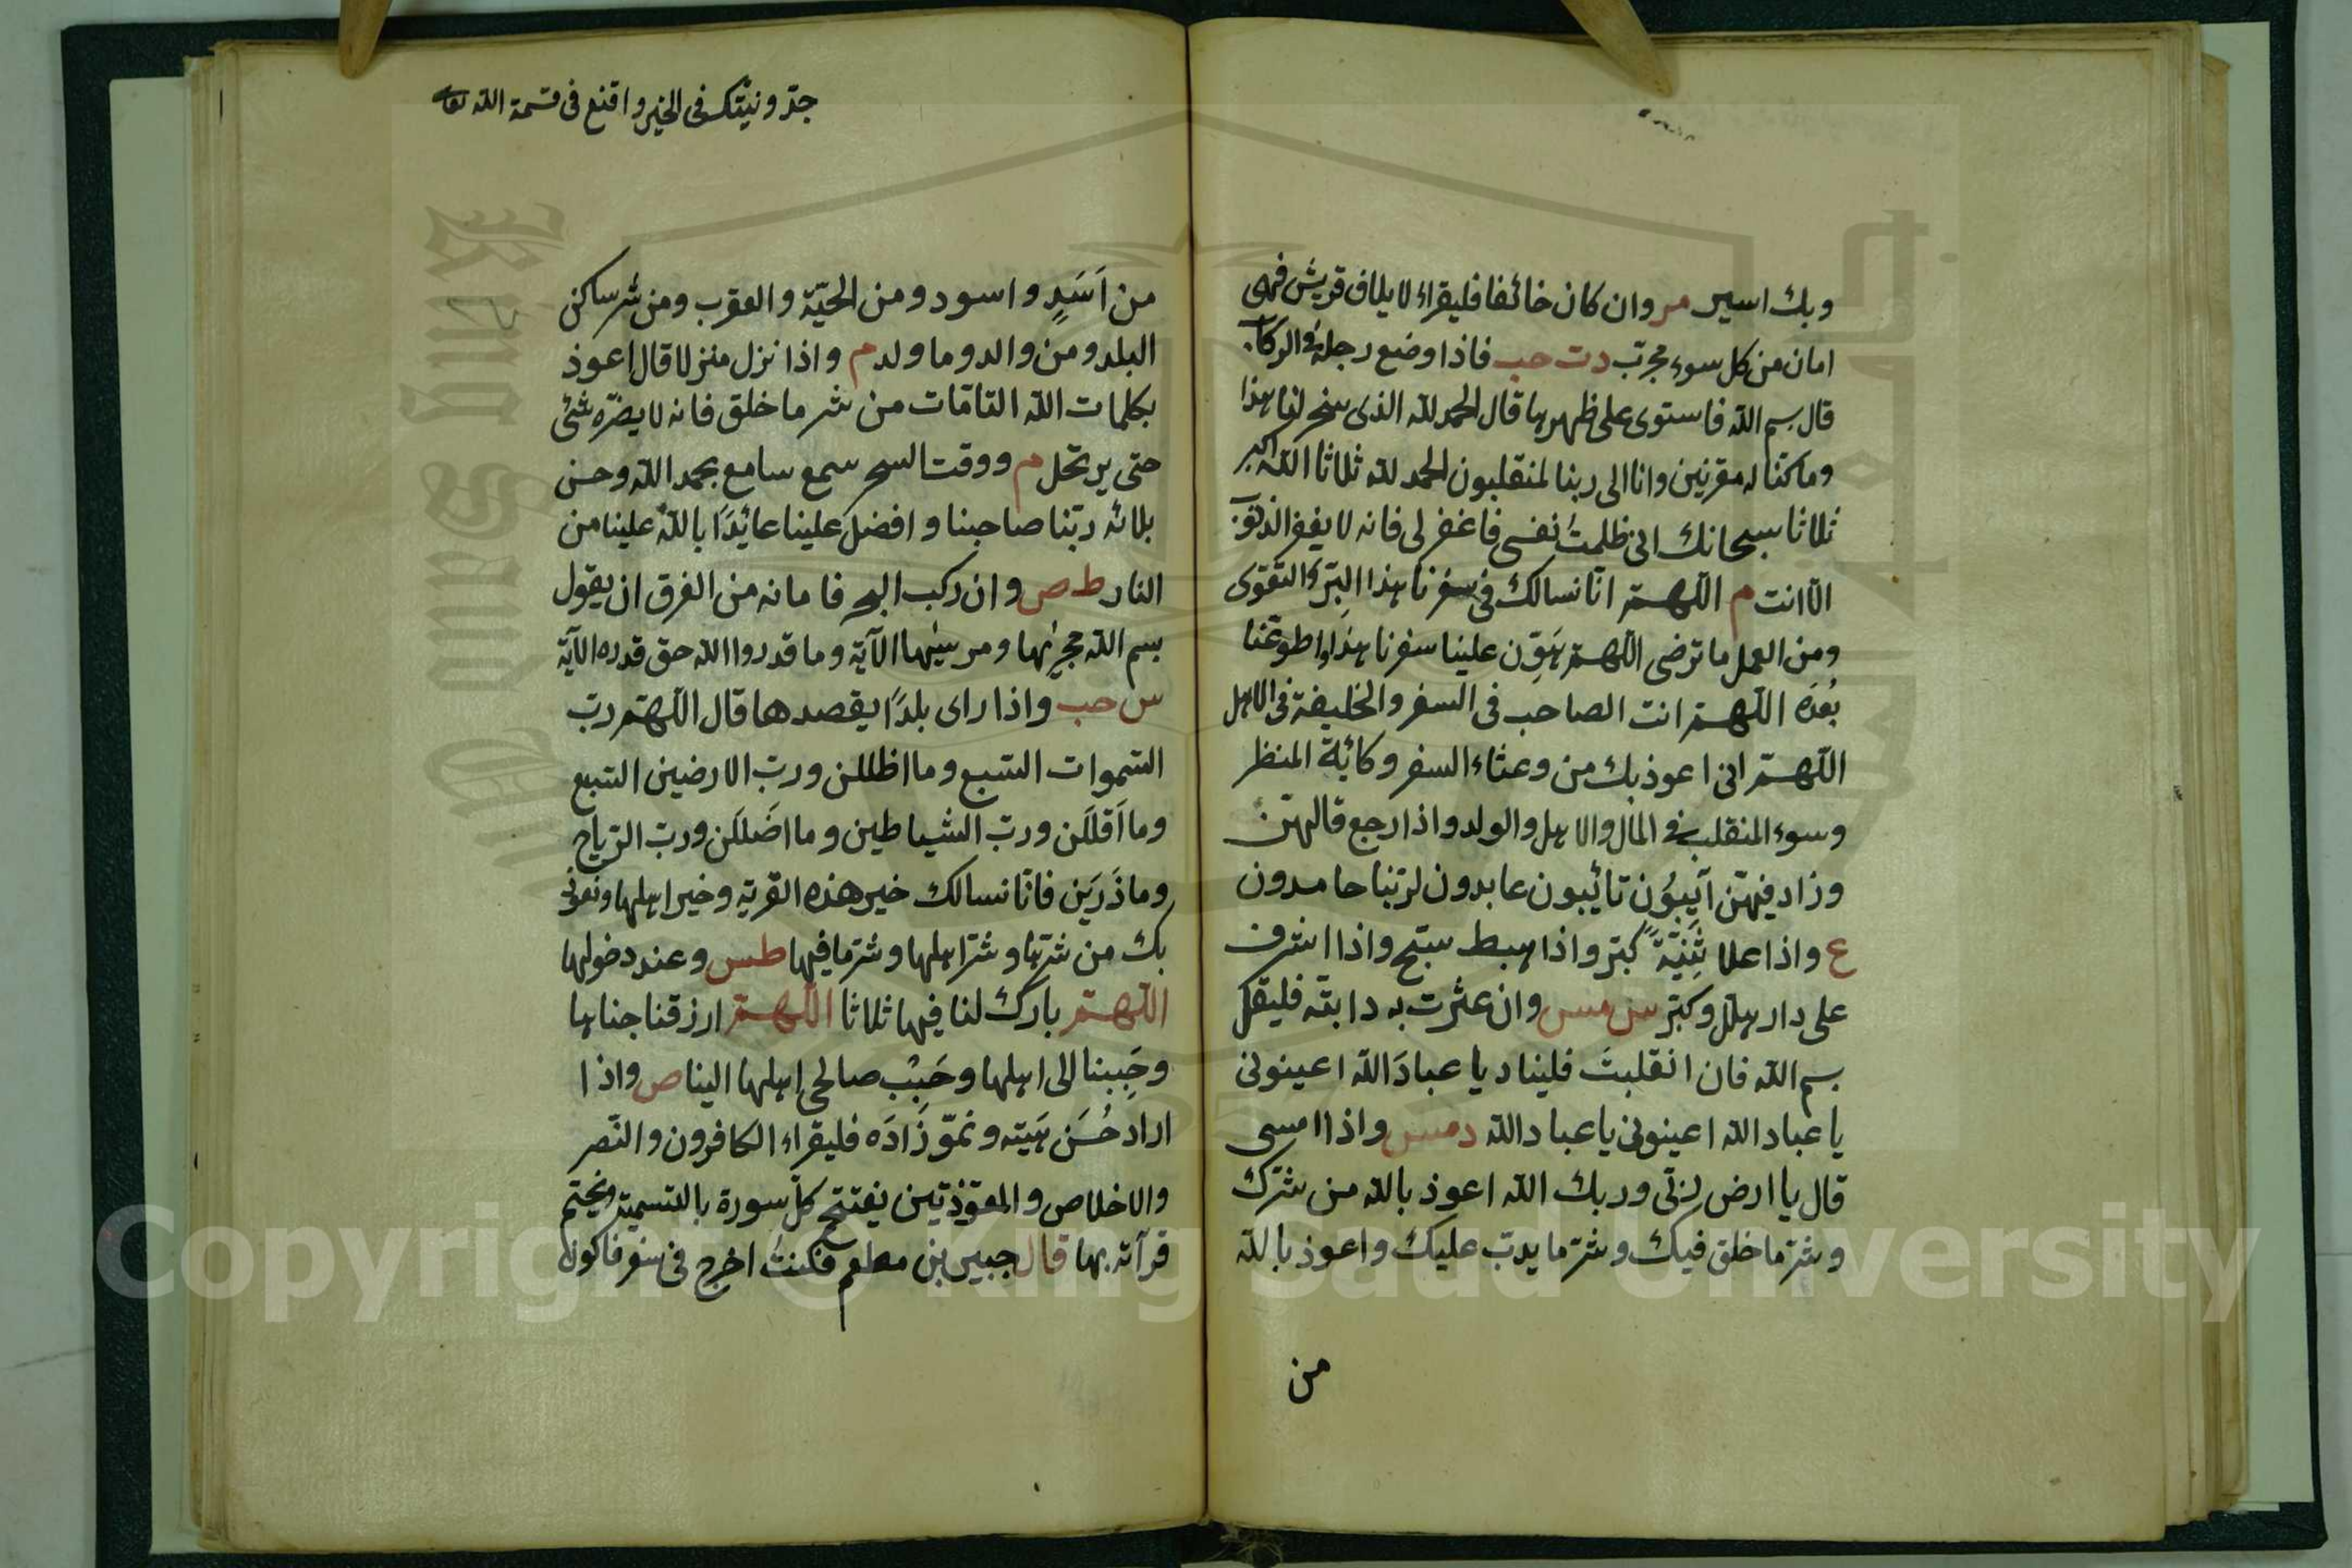 وبك اسير مر وان كان خائفا فليقراء لايلاف قريش فهى
امان من كل سوء مجرّب دت حب فاذا وضع رجله فى الركاب
قال بسم الله فاستوى على ظهرها قال الحمد لله الذى سخر لنا هذا
وما كنا له مقرنين وانا الى ربنا لمنقلبون الحمد لله ثلاثا الله اكبر
ثلاثا سبحانك انى ظلمتُ نفسى فاغفر لى فانه لا يغفر الذنوب
الا انت م اللهم انّا نسالك فى سفرنا هذا البِرّ والتقوى
ومن العمل ما ترضى اللهم هَوِّن علينا سفرنا هذا واطو عنّا
بُعدَه اللهم انت الصاحب فى السفر والخليفة فى الاهل
اللهم انى اعوذ بك من وعثاء السفر وكائبة المنظر
وسوء المنقلب فى المال والاهل والولد واذا رجع قالهنّ
وزاد فيهنّ آيبُون تائبون عابدون لربّنا حامدون
ع واذا علا ثَنِيّةً كبّر واذا هبط سبّح واذا اشرف
على دار هلل وكبّر س مس وان عثرت به دابته فليقل
بسم الله فان انقلبتَ فليناد يا عبادَ الله اعينونى
يا عباد الله اعينونى يا عباد الله دمس واذا امسى
قال يا ارض ربّى وربك الله اعوذ بالله من شرّك
وشرّ ما خلق فيك وشرّ ما يدبّ عليك واعوذ بالله
من
جدّ ونيتك فى الخير واقنع فى قسمة الله تعا
من اَسَدٍ واسود ومن الحيّة والعقرب ومن شر ساكن
البلد ومن والد وما ولد م واذا نزل منزلا قال اعوذ
بكلمات الله التامّات من شر ما خلق فانه لا يضرّه شئ
حتى يرتحل م ووقت السحر سمع سامع بحمد الله وحسن
بلائه ربّنا صاحبنا وافضل علينا عائذًا بالله علينا من
النار ط ص وان ركب البحر فامانه من الغرق ان يقول
بسم الله مجريها ومرسيها الآية وما قدروا الله حق قدره الآية
س حب واذا راى بلدًا يقصدها قال اللهم ربّ
السّموات السّبع وما اظللن وربّ الارضين السّبع
وما اَقلَلن وربّ الشياطين وما اضَللَن وربّ الرّياح
وما ذَرَين فانّا نسالك خير هذه القرية وخير اهلها ونعوذ
بك من شرّها وشرّ اهلها وشرّ ما فيها طس وعند دخولها
اللهمّ بارك لنا فيها ثلاثا اللهمّ ارزقنا جناها
وحَبِبنا الى اهلها وحَبِّب صالحى اهلها الينا ص واذا
اراد حُسَن هَيته ونموّ زَادَه فليقراء الكافرون والنّصر
والاخلاص والمعوّذتين يفتتح كلّ سورة بالتسمية ويختم
قرآته بها قال جبير بن مطعم فكنتُ اخرج فى سفر فاكون
Copyright © King Saud University